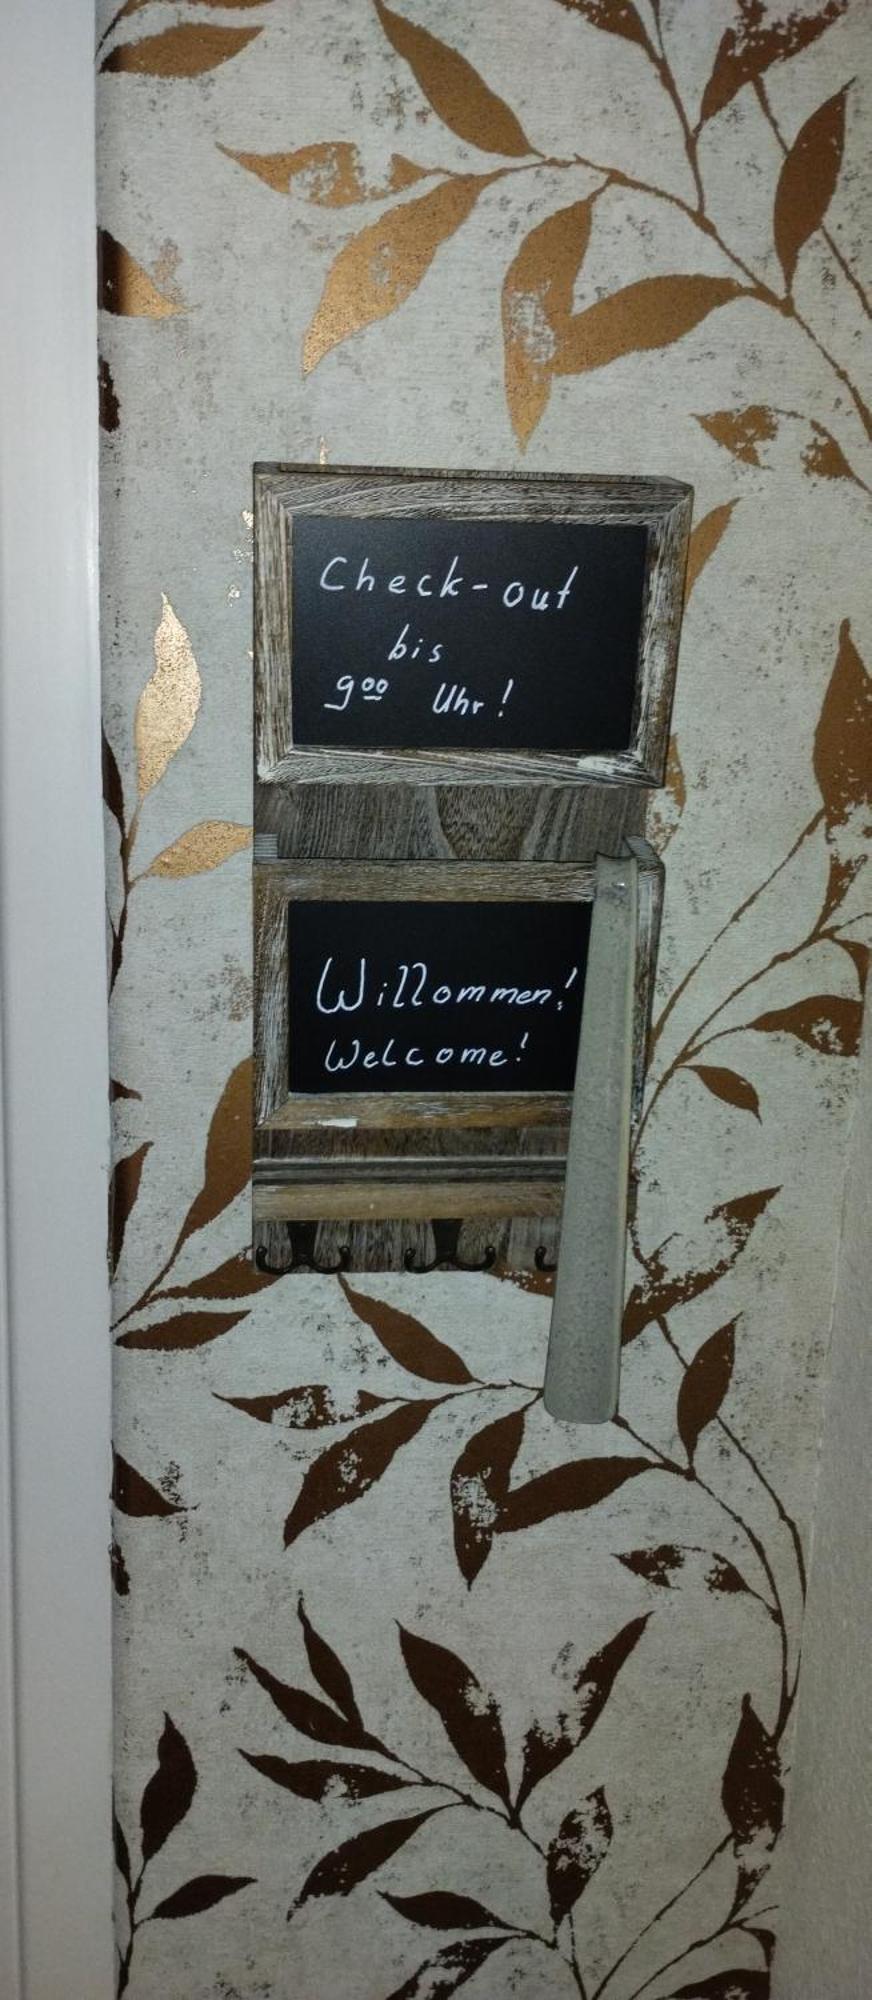 Check-out
bis
9⁰⁰ Uhr!
Willommen!
Welcome!